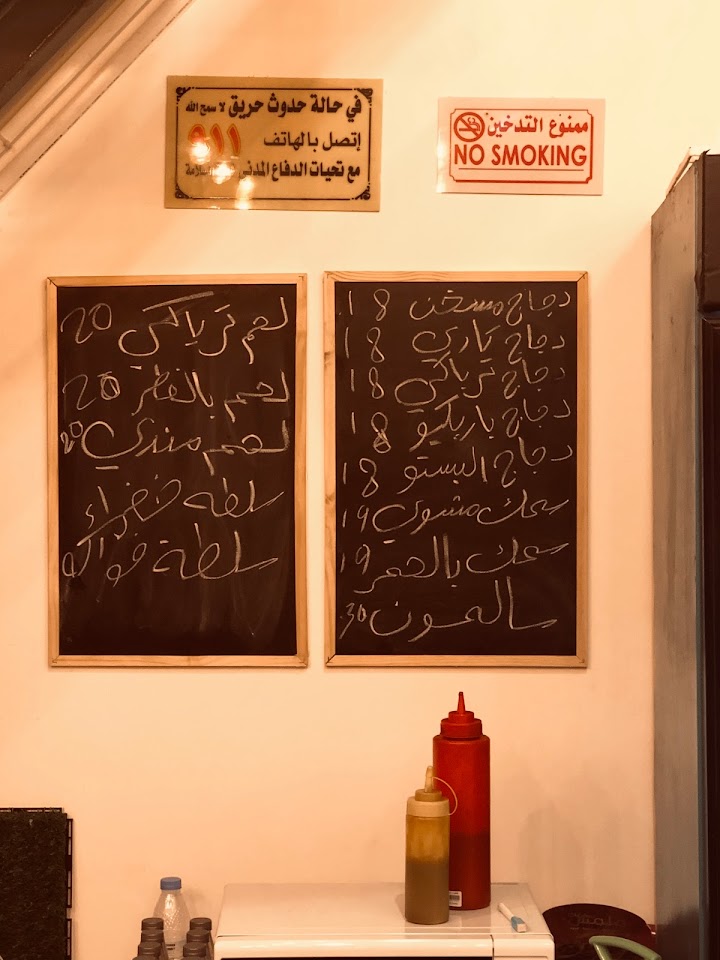 في حالة حدوث حريق لا سمح الله
إتصل بالهاتف 911
مع تحيات الدفاع المدني السلامة
ممنوع التدخين
NO SMOKING
دجاج مسخن 18
دجاج كاري 18
دجاج ترياكي 18
دجاج باربكيو 18
دجاج البستو 18
سمك مشوي 19
سمك 19
سالمون 30
لحم ترياكي 20
لحم بالفطر 20
لحم مندي 20
سلطه خضراء
سلطة فواكه